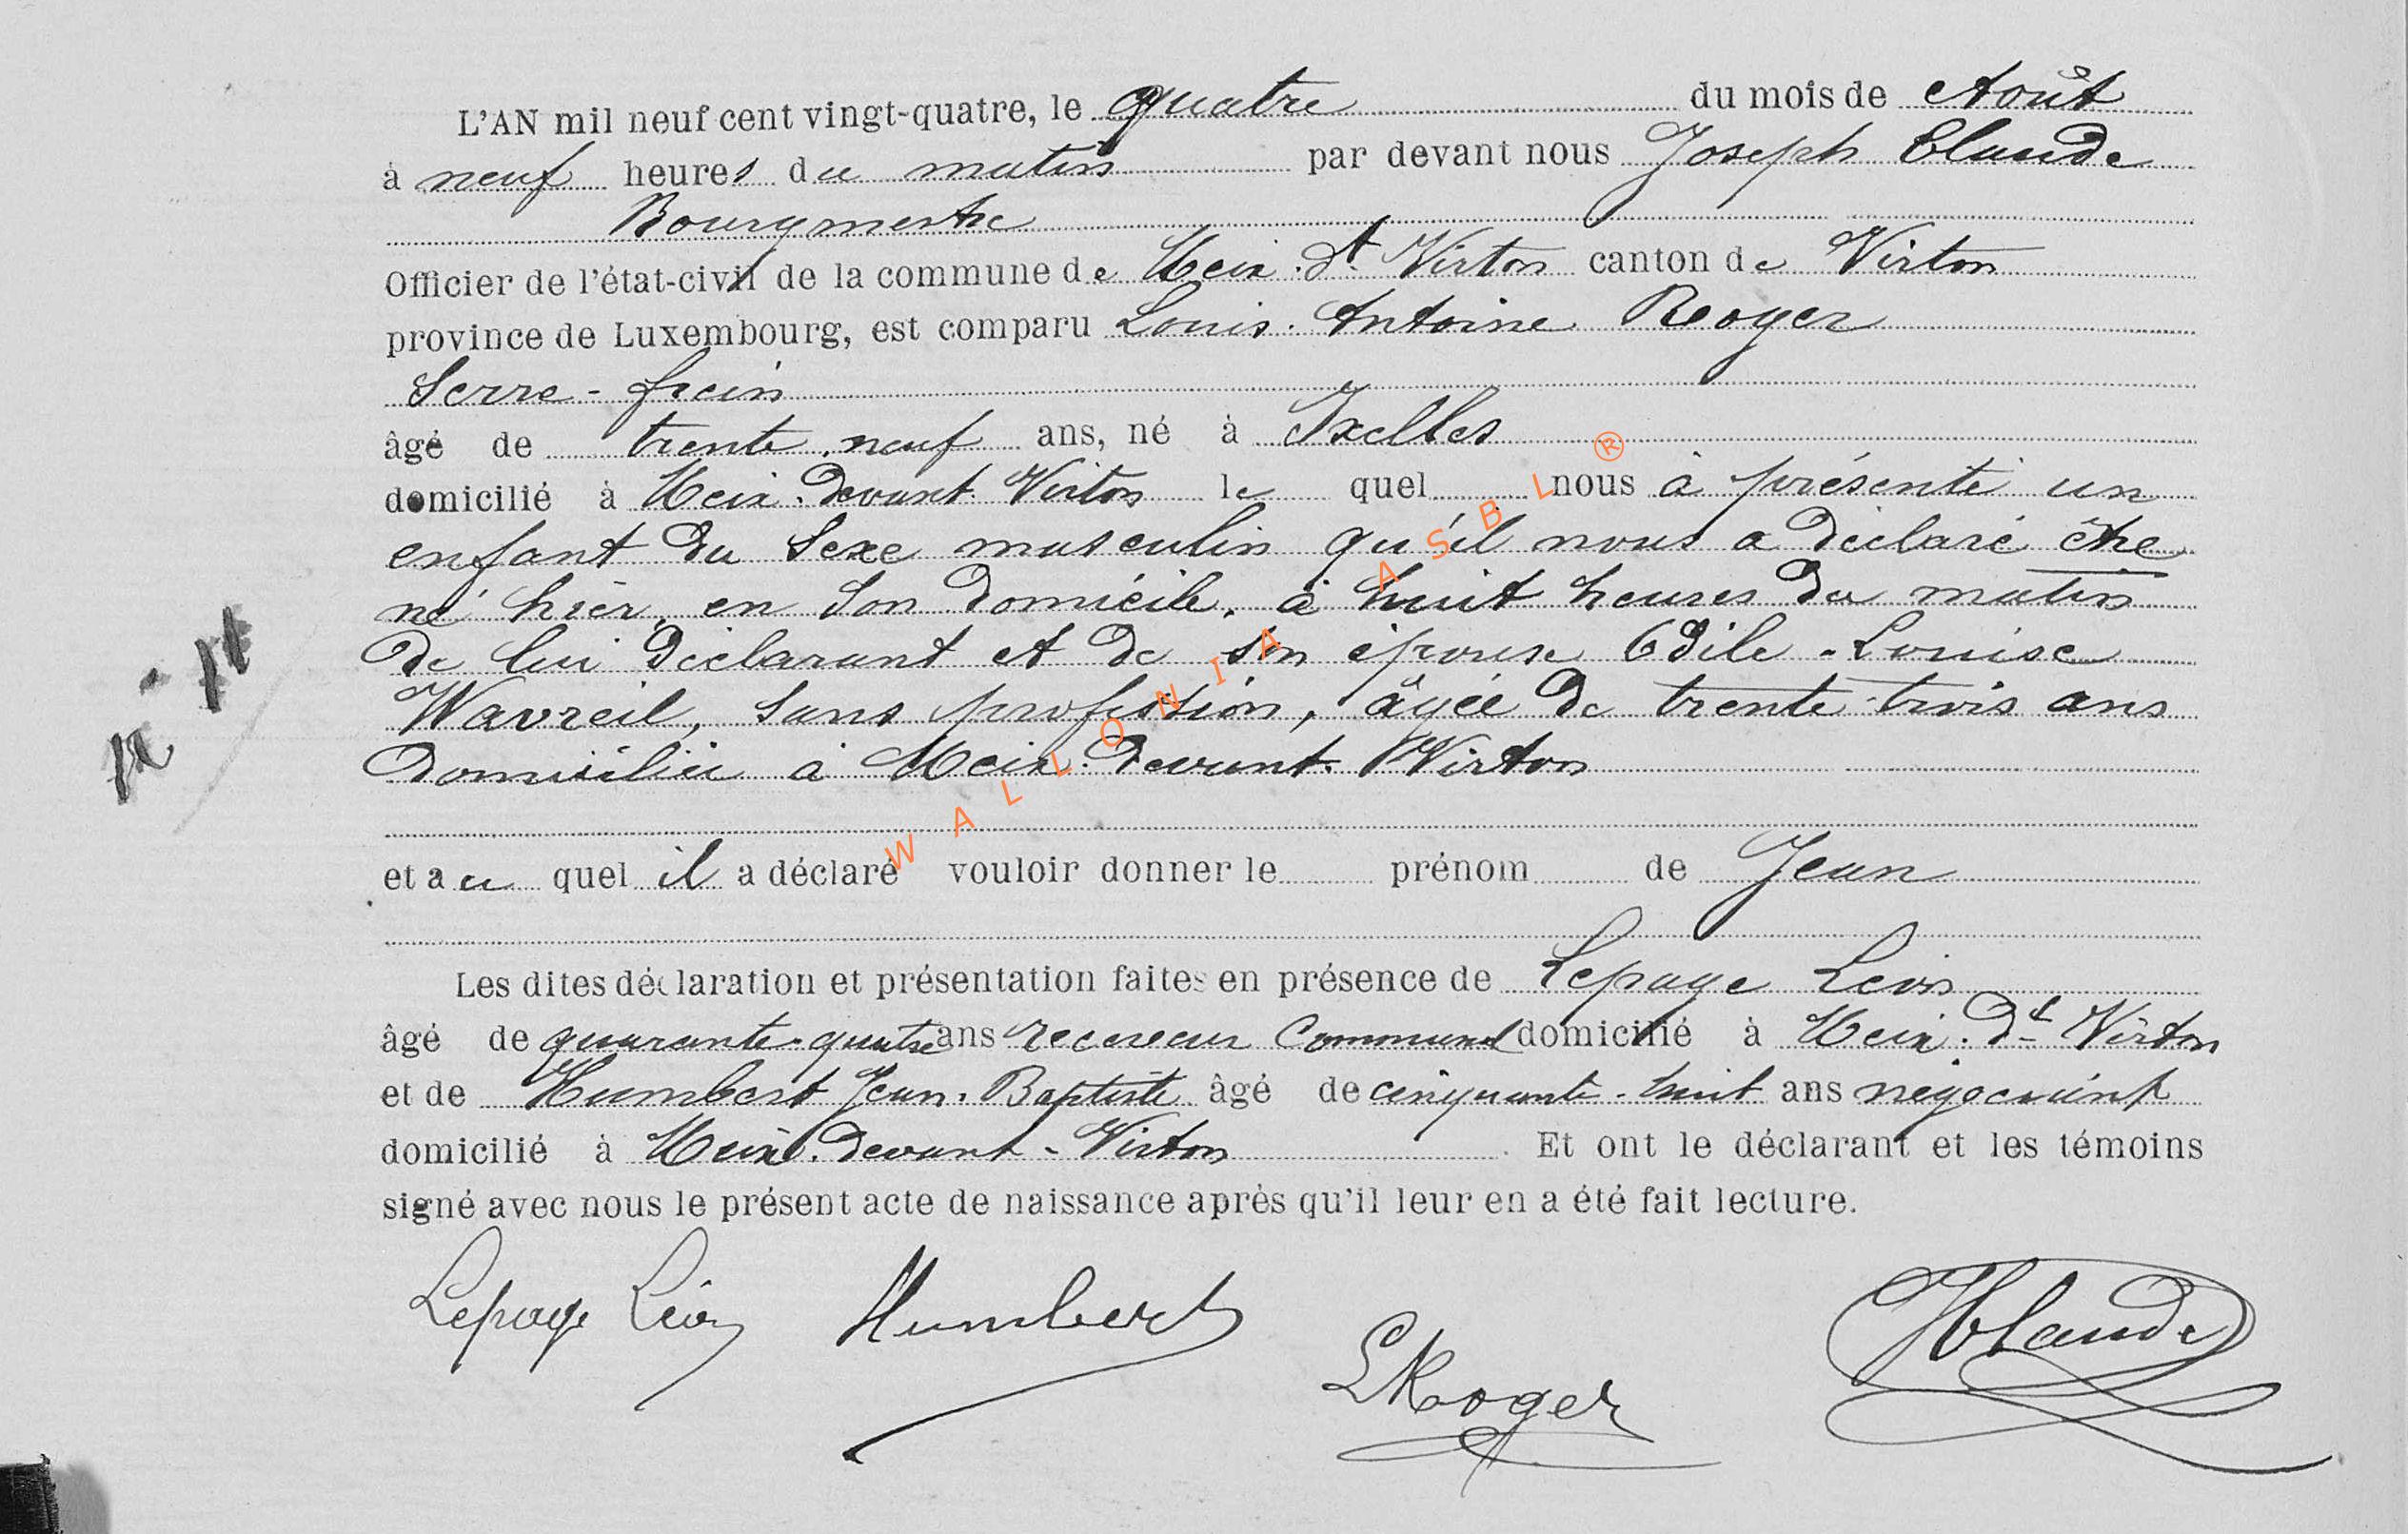 L'AN mil neuf cent vingt-quatre, le quatre du mois de Août
à neuf heures du matin par devant nous Joseph Claude
Bourgmestre
Officier de l'état-civil de la commune de Meix-dt Virton canton de Virton
province de Luxembourg, est comparu Louis-Antoine Roger
Serre-frein
âgé de trente-neuf ans, né à Ixelles
domicilié à Meix-devant-Virton le quel nous à présenté un
enfant du sexe masculin qu'il nous a déclaré être
né hier, en son domicile, à huit heures du matin
de lui déclarant et de son épouse Odile-Louise
Wavreil, sans profession, âgée de trente-trois ans
domiciliée à Meix-devant-Virton
et au quel il a déclaré vouloir donner le prénom de Jean
Les dites déclaration et présentation faites en présence de Lepage Léon
âgé de quarante-quatre ans receveur Communal domicilié à Meix-dt Virton
et de Humbert Jean-Baptiste âgé de cinquante-huit ans négociant
domicilié à Meix-devant-Virton. Et ont le déclarant et les témoins
signé avec nous le présent acte de naissance après qu'il leur en a été fait lecture.
Lepage Léon Humbert LRoger JClaude
WALLONIA ASBL ®